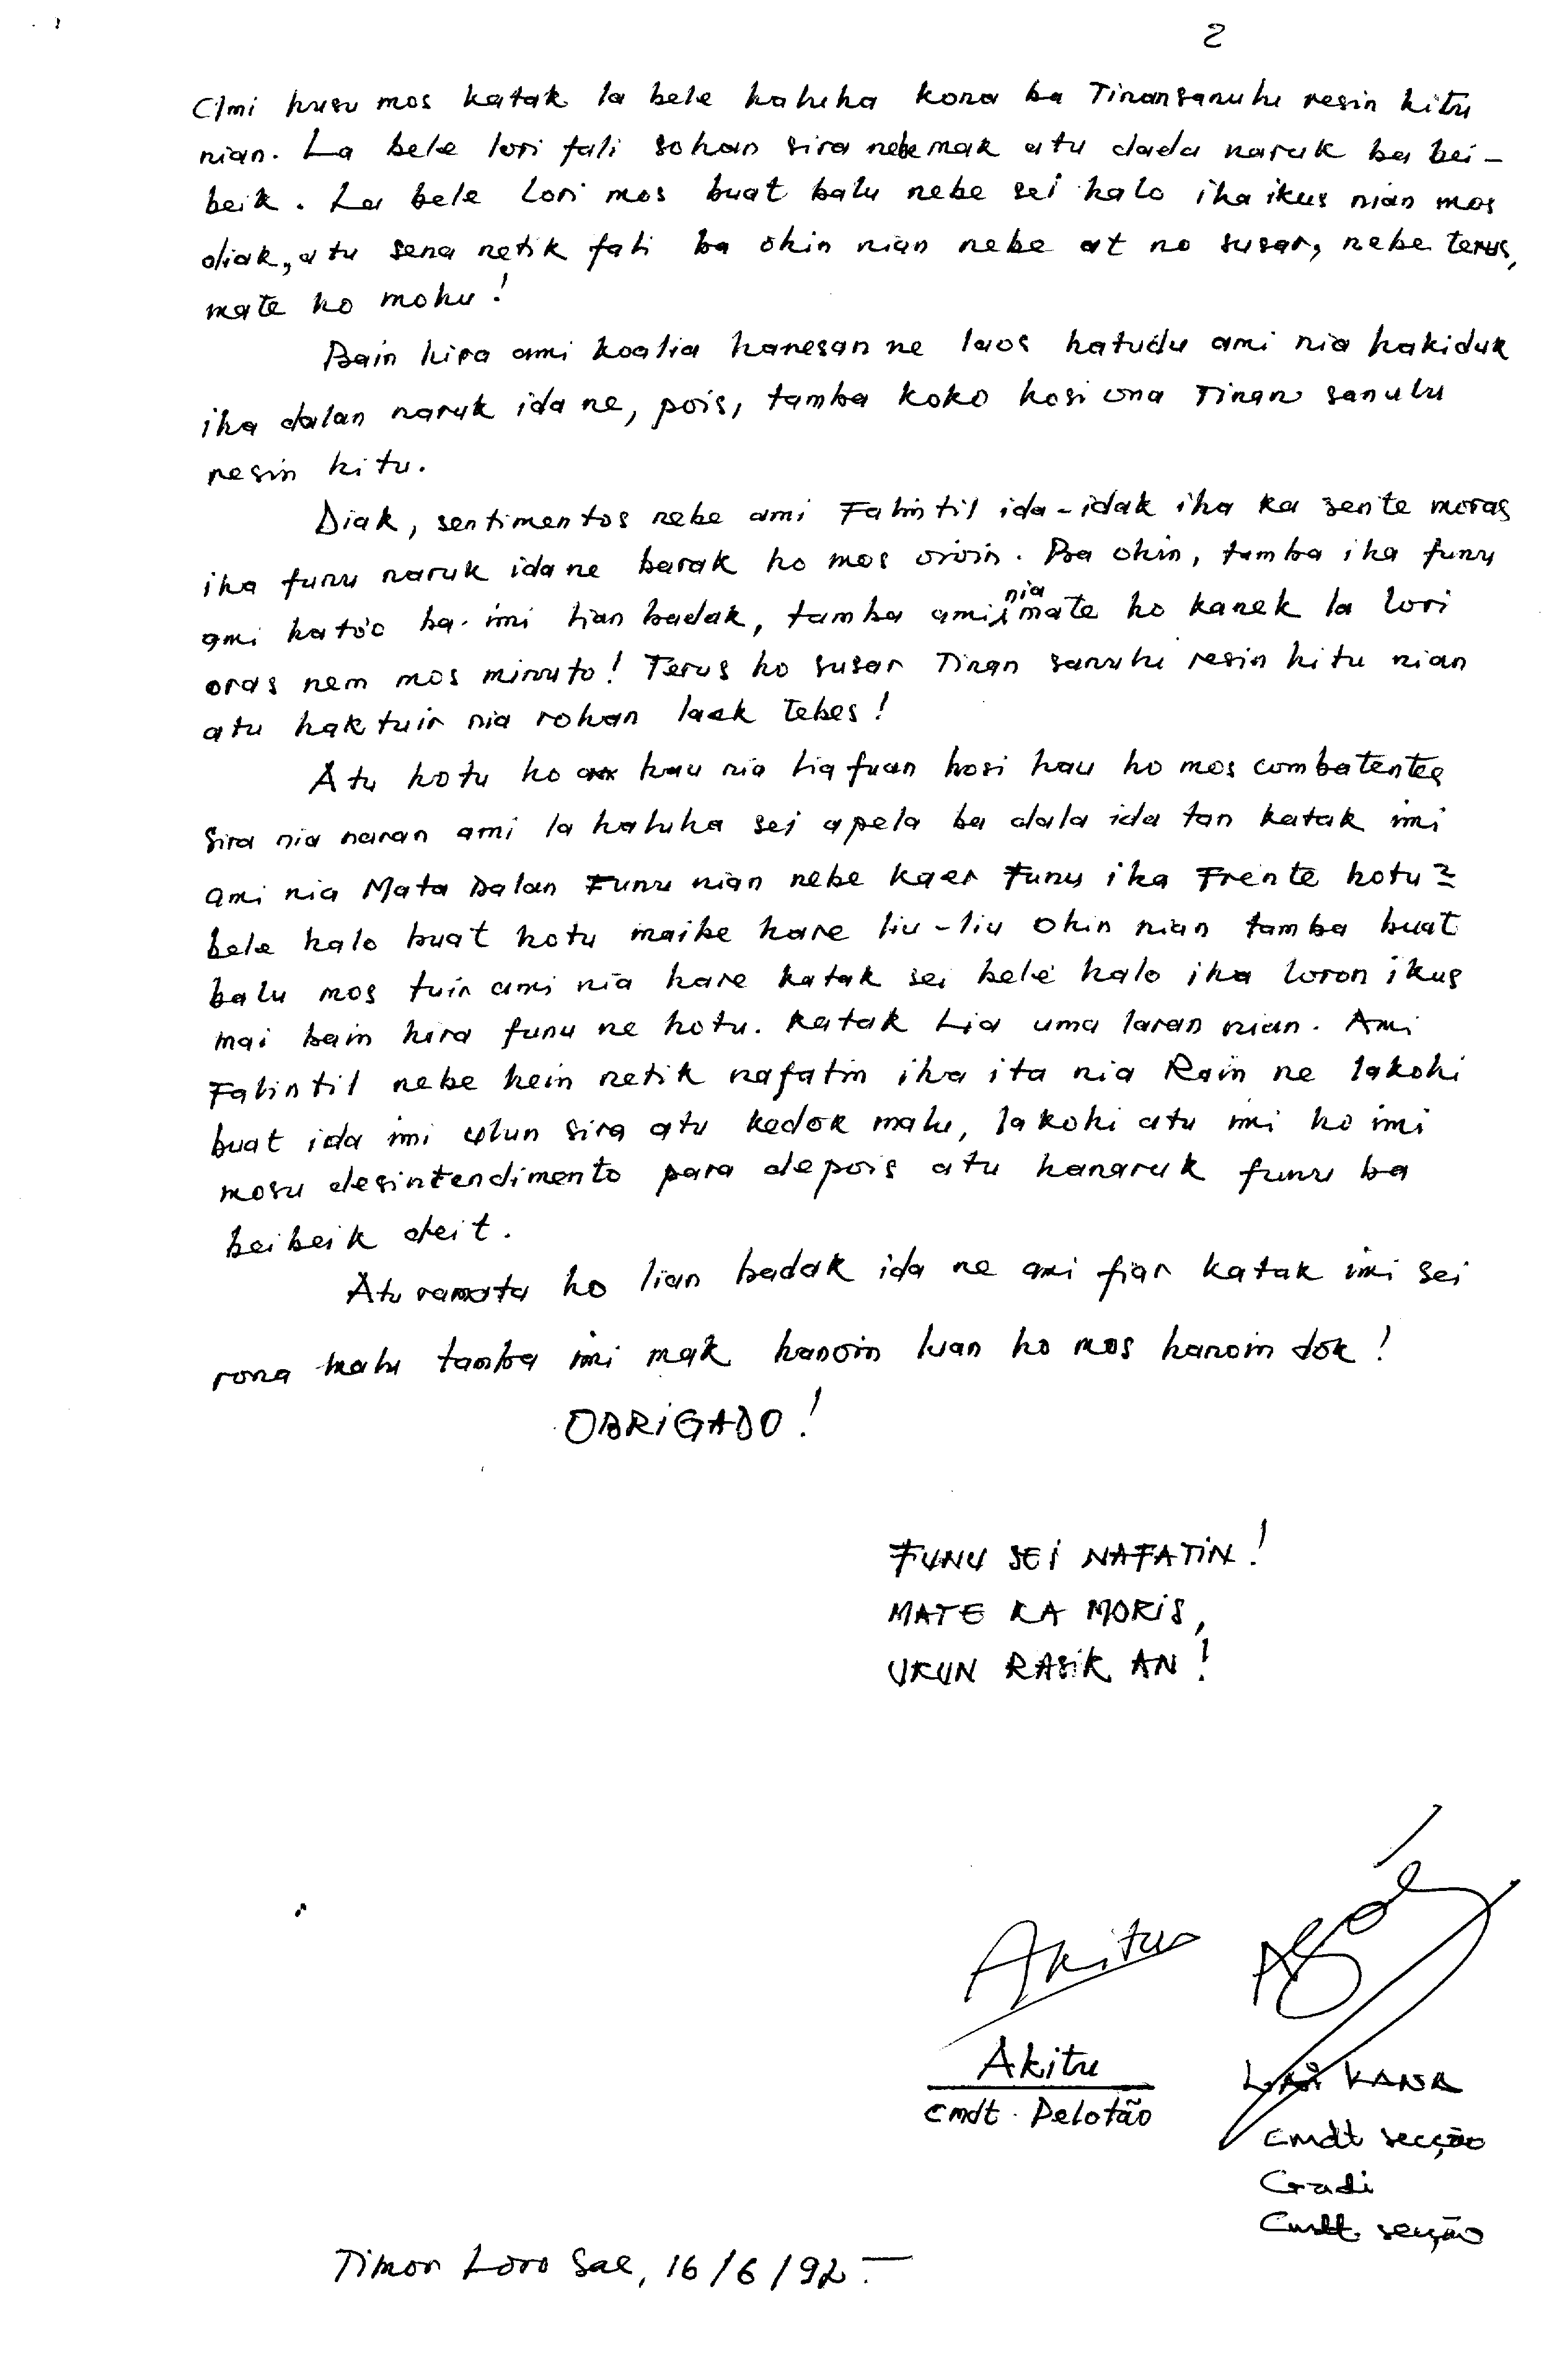 2
Ami husu mos katak la bele haluha kona ba Tinan sanulu resin hitu
nian. La bele lori fali sohan sira nebe mak atu dada naruk ba bei-
beik. La bele lori mos buat balu nebe sei halo iha ikus nian mos
diak, atu sena netik fali ba ohin nian nebe at no susar, nebe terus,
mate ho mohu!
Bain hira ami koalia hanesan ne laos hatudu ami nia hakiduk
iha dalan naruk ida ne, pois, tamba koko hosi ona Tinan sanulu
resin hitu.
Diak, sentimentos nebe ami Falintil ida-idak iha ka sente moras
iha funu naruk ida ne barak ho mos oioin. Ba ohin, tamba iha funu
ami hato'o ba imi lian badak, tamba ami nia mate ho kanek la lori
oras nem mos minuto! Terus ho susar Tinan sanulu resin hitu nian
atu haktuir nia rohan laek tebes!
Atu hotu ho hau nia liafuan hosi hau ho mos combatentes
sira nia naran ami la haluha sei apela ba dala ida tan katak imi
ami nia Mata Dalan Funu nian nebe kaer Funu iha Frente hotu2
bele halo buat hotu maibe hare liu-liu ohin nian tamba buat
balu mos tuir ami nia hare katak sei bele halo iha loron ikus
mai bain hira funu ne hotu. Katak Lia uma laran nian. Ami
Falintil nebe hein netik nafatin iha ita nia Rain ne lakohi
buat ida imi ulun sira atu kedok malu, lakohi atu imi ho imi
mosu desintendimento para depois atu hanaruk funu ba
beibeik deit.
Atu ramata ho lian badak ida ne ami fiar katak imi sei
rona malu tamba imi mak hanoin luan ho mos hanoin dok!
OBRIGADO!
FUNU SEI NAFATIN!
MATE KA MORIS,
UKUN RASIK AN!
Akitu
Akitu
Cmdt. Pelotão
KANA
Cmdt secção
Gadi
Cmdt. secção
Timor Loro Sae, 16/6/92.—